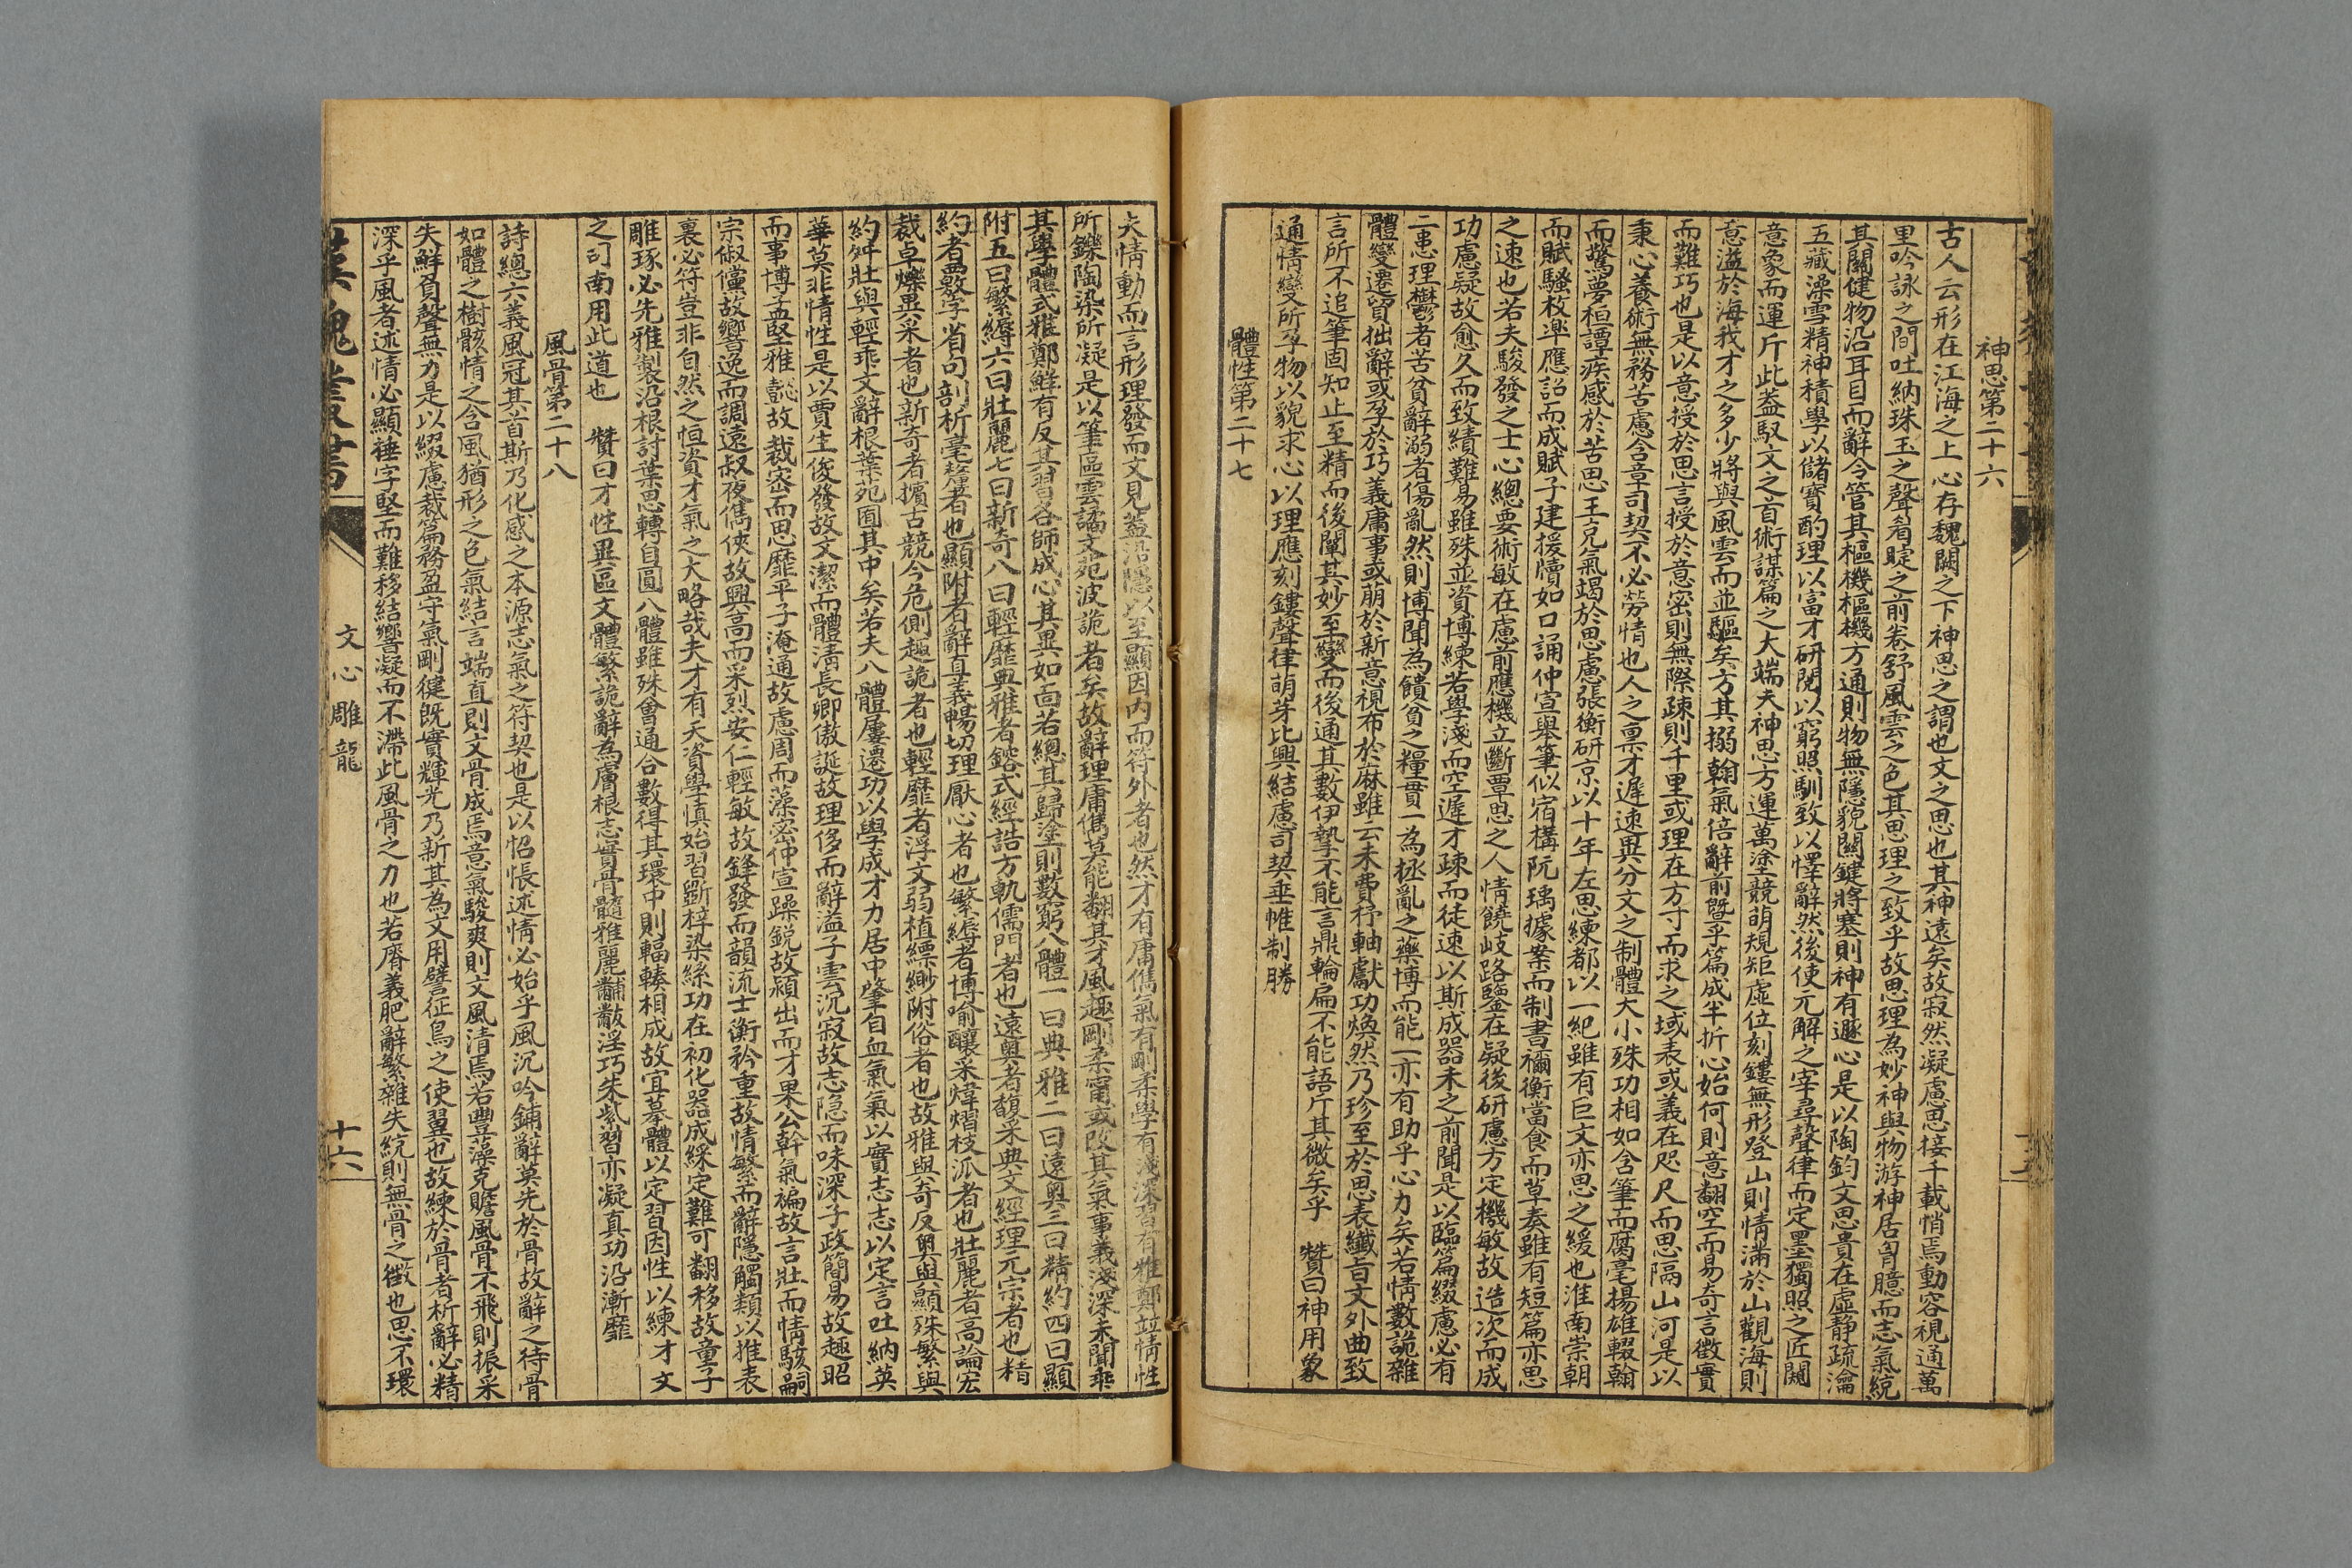 神思第二十六
古人云形在江海之上心存魏闕之下神思之謂也文之思也其神遠矣故寂然凝慮思接千載悄焉動容視通萬
里吟詠之間吐納珠玉之聲眉睫之前卷舒風雲之色其思理之致乎故思理為妙神與物游神居胷臆而志氣統
其關健物沿耳目而辭令管其樞機樞機方通則物無隱貌關鍵將塞則神有遯心是以陶鈞文思貴在虛靜疏瀹
五藏澡雪精神積學以儲寶酌理以富才研閱以窮照馴致以懌辭然後使元解之宰尋聲律而定墨獨照之匠闚
意象而運斤此蓋馭文之首術謀篇之大端夫神思方運萬塗競萌規矩虛位刻鏤無形登山則情滿於山觀海則
意溢於海我才之多少將與風雲而並驅矣方其搦翰氣倍辭前暨乎篇成半折心始何則意翻空而易奇言徵實
而難巧也是以意授於思言授於意密則無際疎則千里或理在方寸而求之域表或義在咫尺而思隔山河是以
秉心養術無務苦慮含章司契不必勞情也人之稟才遲速異分文之制體大小殊功相如含筆而腐毫揚雄輟翰
而驚夢桓譚疾感於苦思王充氣竭於思慮張衡研京以十年左思練都以一紀雖有巨文亦思之緩也淮南崇朝
而賦騷枚臯應詔而成賦子建援牘如口誦仲宣舉筆似宿構阮瑀據案而制書禰衡當食而草奏雖有短篇亦思
之速也若夫駿發之士心總要術敏在慮前應機立斷覃思之人情饒岐路鑒在疑後研慮方定機敏故造次而成
功慮疑故愈久而致績難易雖殊並資博練若學淺而空遲才疎而徒速以斯成器未之前聞是以臨篇綴慮必有
二患理鬱者苦貧辭溺者傷亂然則博聞為饋貧之糧貫一為拯亂之藥博而能一亦有助乎心力矣若情數詭雜
體變遷貿拙辭或孕於巧義庸事或萌於新意視布於麻雖云未費杼軸獻功煥然乃珍至於思表纖旨文外曲致
言所不追筆固知止至精而後闡其妙至變而後通其數伊摯不能言鼎輪扁不能語斤其微矣乎　贊曰神用象
通情變所孕物以貌求心以理應刻鏤聲律萌芽比興結慮司契垂帷制勝
體性第二十七
夫情動而言形理發而文見蓋沿隱以至顯因內而符外者也然才有庸儁氣有剛柔學有淺深習有雅鄭並情性
所鑠陶染所凝是以筆區雲譎文苑波詭者矣故辭理庸儁莫能翻其才風趣剛柔甯或改其氣事義淺深未聞乖
其學體式雅鄭鮮有反其習各師成心其異如面若總其歸塗則數窮八體一曰典雅二曰遠奧三曰精約四曰顯
附五曰繁縟六曰壯麗七曰新奇八曰輕靡典雅者鎔式經誥方軌儒門者也遠奧者馥采典文經理元宗者也精
約者覈字省句剖析毫釐者也顯附者辭直義暢切理厭心者也繁縟者博喻釀采煒熠枝派者也壯麗者高論宏
裁卓爍異采者也新奇者擯古競今危側趣詭者也輕靡者浮文弱植縹緲附俗者也故雅與奇反奧與顯殊繁與
約舛壯與輕乖文辭根葉苑囿其中矣若夫八體屢遷功以學成才力居中肇自血氣氣以實志志以定言吐納英
華莫非情性是以賈生俊發故文潔而體清長卿傲誕故理侈而辭溢子雲沉寂故志隱而味深子政簡易故趣昭
而事博孟堅雅懿故裁密而思靡平子淹通故慮周而藻密仲宣躁銳故穎出而才果公幹氣褊故言壯而情駭嗣
宗俶儻故響逸而調遠叔夜儁俠故興高而采烈安仁輕敏故鋒發而韻流士衡矜重故情繁而辭隱觸類以推表
裏必符豈非自然之恒資才氣之大略哉夫才有天資學慎始習斲梓染絲功在初化器成綵定難可翻移故童子
雕琢必先雅製沿根討葉思轉自圓八體雖殊會通合數得其環中則輻輳相成故宜摹體以定習因性以練才文
之司南用此道也　贊曰才性異區文體繁詭辭為膚根志實骨髓雅麗黼黻淫巧朱紫習亦凝真功沿漸靡
風骨第二十八
詩總六義風冠其首斯乃化感之本源志氣之符契也是以怊悵述情必始乎風沉吟鋪辭莫先於骨故辭之待骨
如體之樹骸情之含風猶形之包氣結言端直則文骨成焉意氣駿爽則文風清焉若豐藻克贍風骨不飛則振采
失鮮負聲無力是以綴慮裁篇務盈守氣剛健既實輝光乃新其為文用譬征鳥之使翼也故練於骨者析辭必精
深乎風者述情必顯捶字堅而難移結響凝而不滯此風骨之力也若瘠義肥辭繁雜失統則無骨之徵也思不環
漢魏叢書　文心雕龍　十六